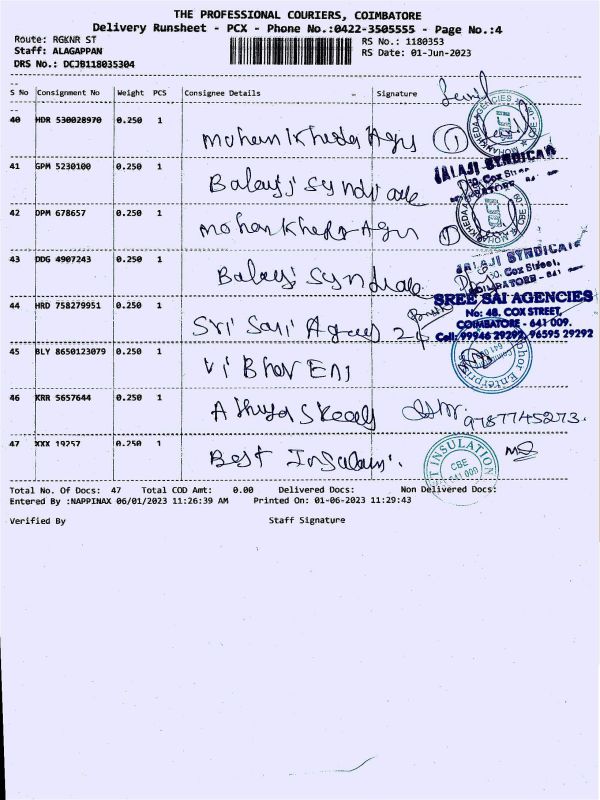 THE PROFESSIONAL COURIERS, COIMBATORE
Delivery Runsheet - PCX - Phone No.:0422-3505555 - Page No.:4
Route: RGKNR ST
RS No.: 1180353
Staff: ALAGAPPAN
RS Date: 01-Jun-2023
DRS No.: DCJB118035304
S No Consignment No Weight PCS Consignee Details Signature
40 HDR 530028970 0.250 1
Mohan Kheda Agys ①
41 GPM 5230100 0.250 1
Balaji Syndicate
BALAJI SYNDICATE
Cox Street
42 DPM 678657 0.250 1
Mohan Kheda Agn ①
43 DDG 4907243 0.250 1
Balaji Syndicate
BALAJI SYNDICATE
Cox Street,
COIMBATORE - 641
44 HRD 758279951 0.250 1
Sri Sai Agencies
SREE SAI AGENCIES
No: 48, COX STREET,
COIMBATORE - 641 009.
Cell: 99946 29292, 96595 29292
45 BLY 8650123079 0.250 1
Vibhor Ent
46 KRR 5657644 0.250 1
9787745273.
47 XXX 19257 0.250 1
Best Insulation.
INSULATION
CBE
641 009
Total No. Of Docs: 47 Total COD Amt: 0.00 Delivered Docs: Non Delivered Docs:
Entered By :NAPPINAX 06/01/2023 11:26:39 AM Printed On: 01-06-2023 11:29:43
Verified By Staff Signature